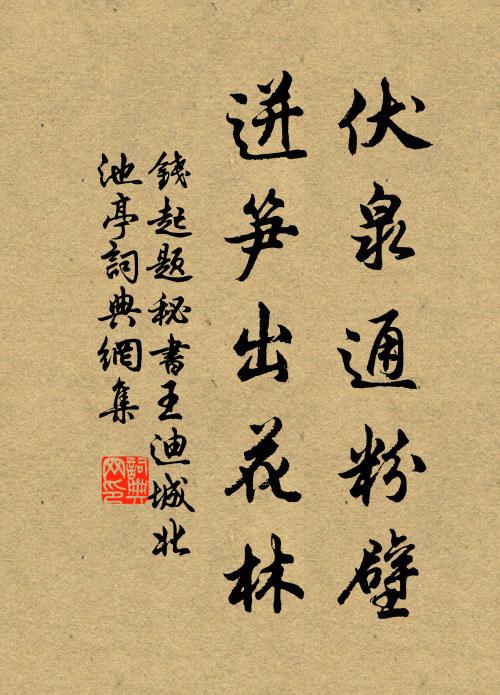 伏泉通粉壁
迸笋出花林
錢起题秘書王迪城北
池亭詞典網集
詞典
网印